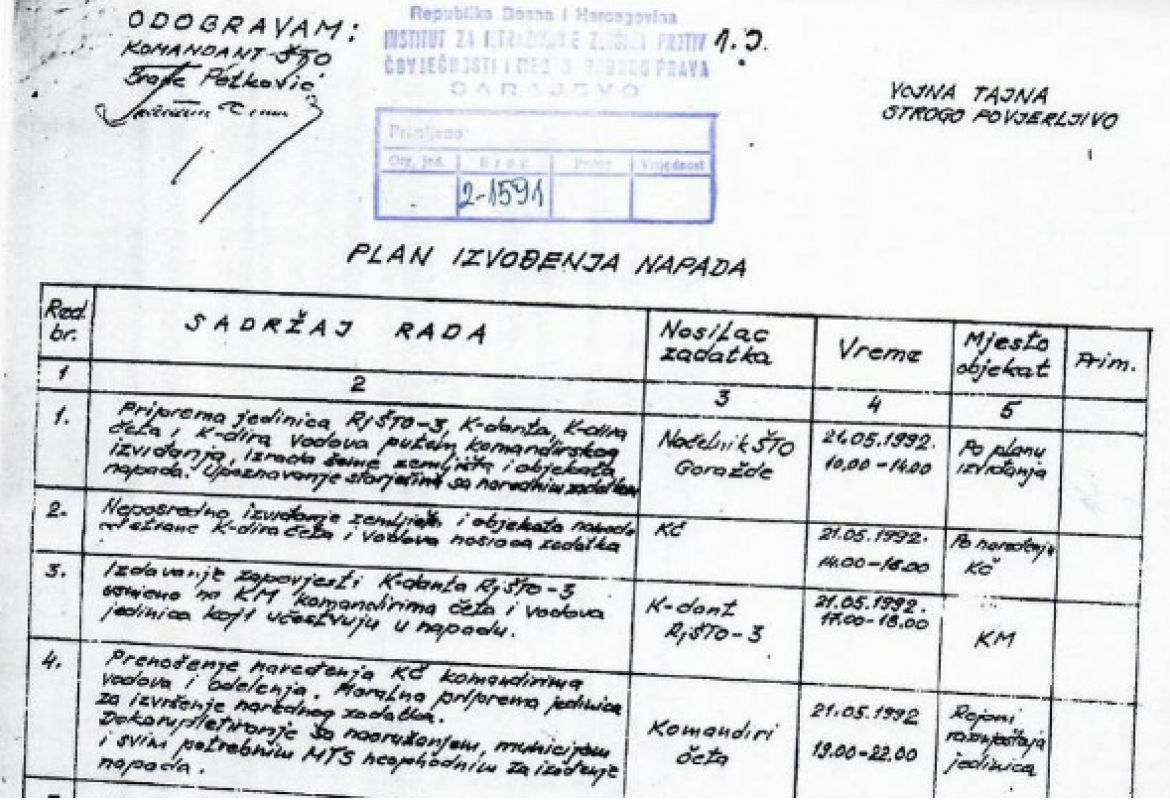 ODOBRAVAM:
KOMANDANT ŠTO
Petković
Republika Bosna i Hercegovina
INSTITUT ZA ISTRAŽIVANJE ZLOČINA PROTIV
ČOVJEČNOSTI I MEĐUNARODNOG PRAVA
SARAJEVO
Primljeno:
Org. jed. Broj Prilog Vrijednost
2-1591
VOJNA TAJNA
STROGO POVJERLJIVO
PLAN IZVOĐENJA NAPADA
Red. br. SADRŽAJ RADA Nosilac zadatka Vreme Mjesto objekat Prim.
1 2 3 4 5
1. Priprema jedinica RjŠTO-3, K-danta, K-dira
četa i K-dira vodova putem komandirskog
izviđanja, izrada šeme zemljišta i objekata
napada. Upoznavanje starješina sa narednim zadatkom
Načelnik ŠTO
Goražde
21.05.1992.
10.00-14.00
Po planu
izviđanja
2. Neposredno izviđanje zemljišta i objekata napada
K-dira četa i vodova nosioca zadatka
KČ
21.05.1992.
14.00-16.00
Po naređenju
KČ
3. Izdavanje zapovjesti K-danta RjŠTO-3
usmeno na KM komandirima četa i vodova
jedinica koji učestvuju u napadu.
K-dant
RjŠTO-3
21.05.1992.
17.00-18.00
KM
4. Prenošenje naređenja KČ komandirima
vodova i odelenja. Moralna priprema jedinica
za izvršenje narednog zadatka.
Dokompletiranje sa naoružanjem, municijom
i svim potrebnim MTS neophodnim za izvođenje
napada.
Komandiri
četa
21.05.1992
19.00-22.00
Rejoni
razmještaja
jedinica